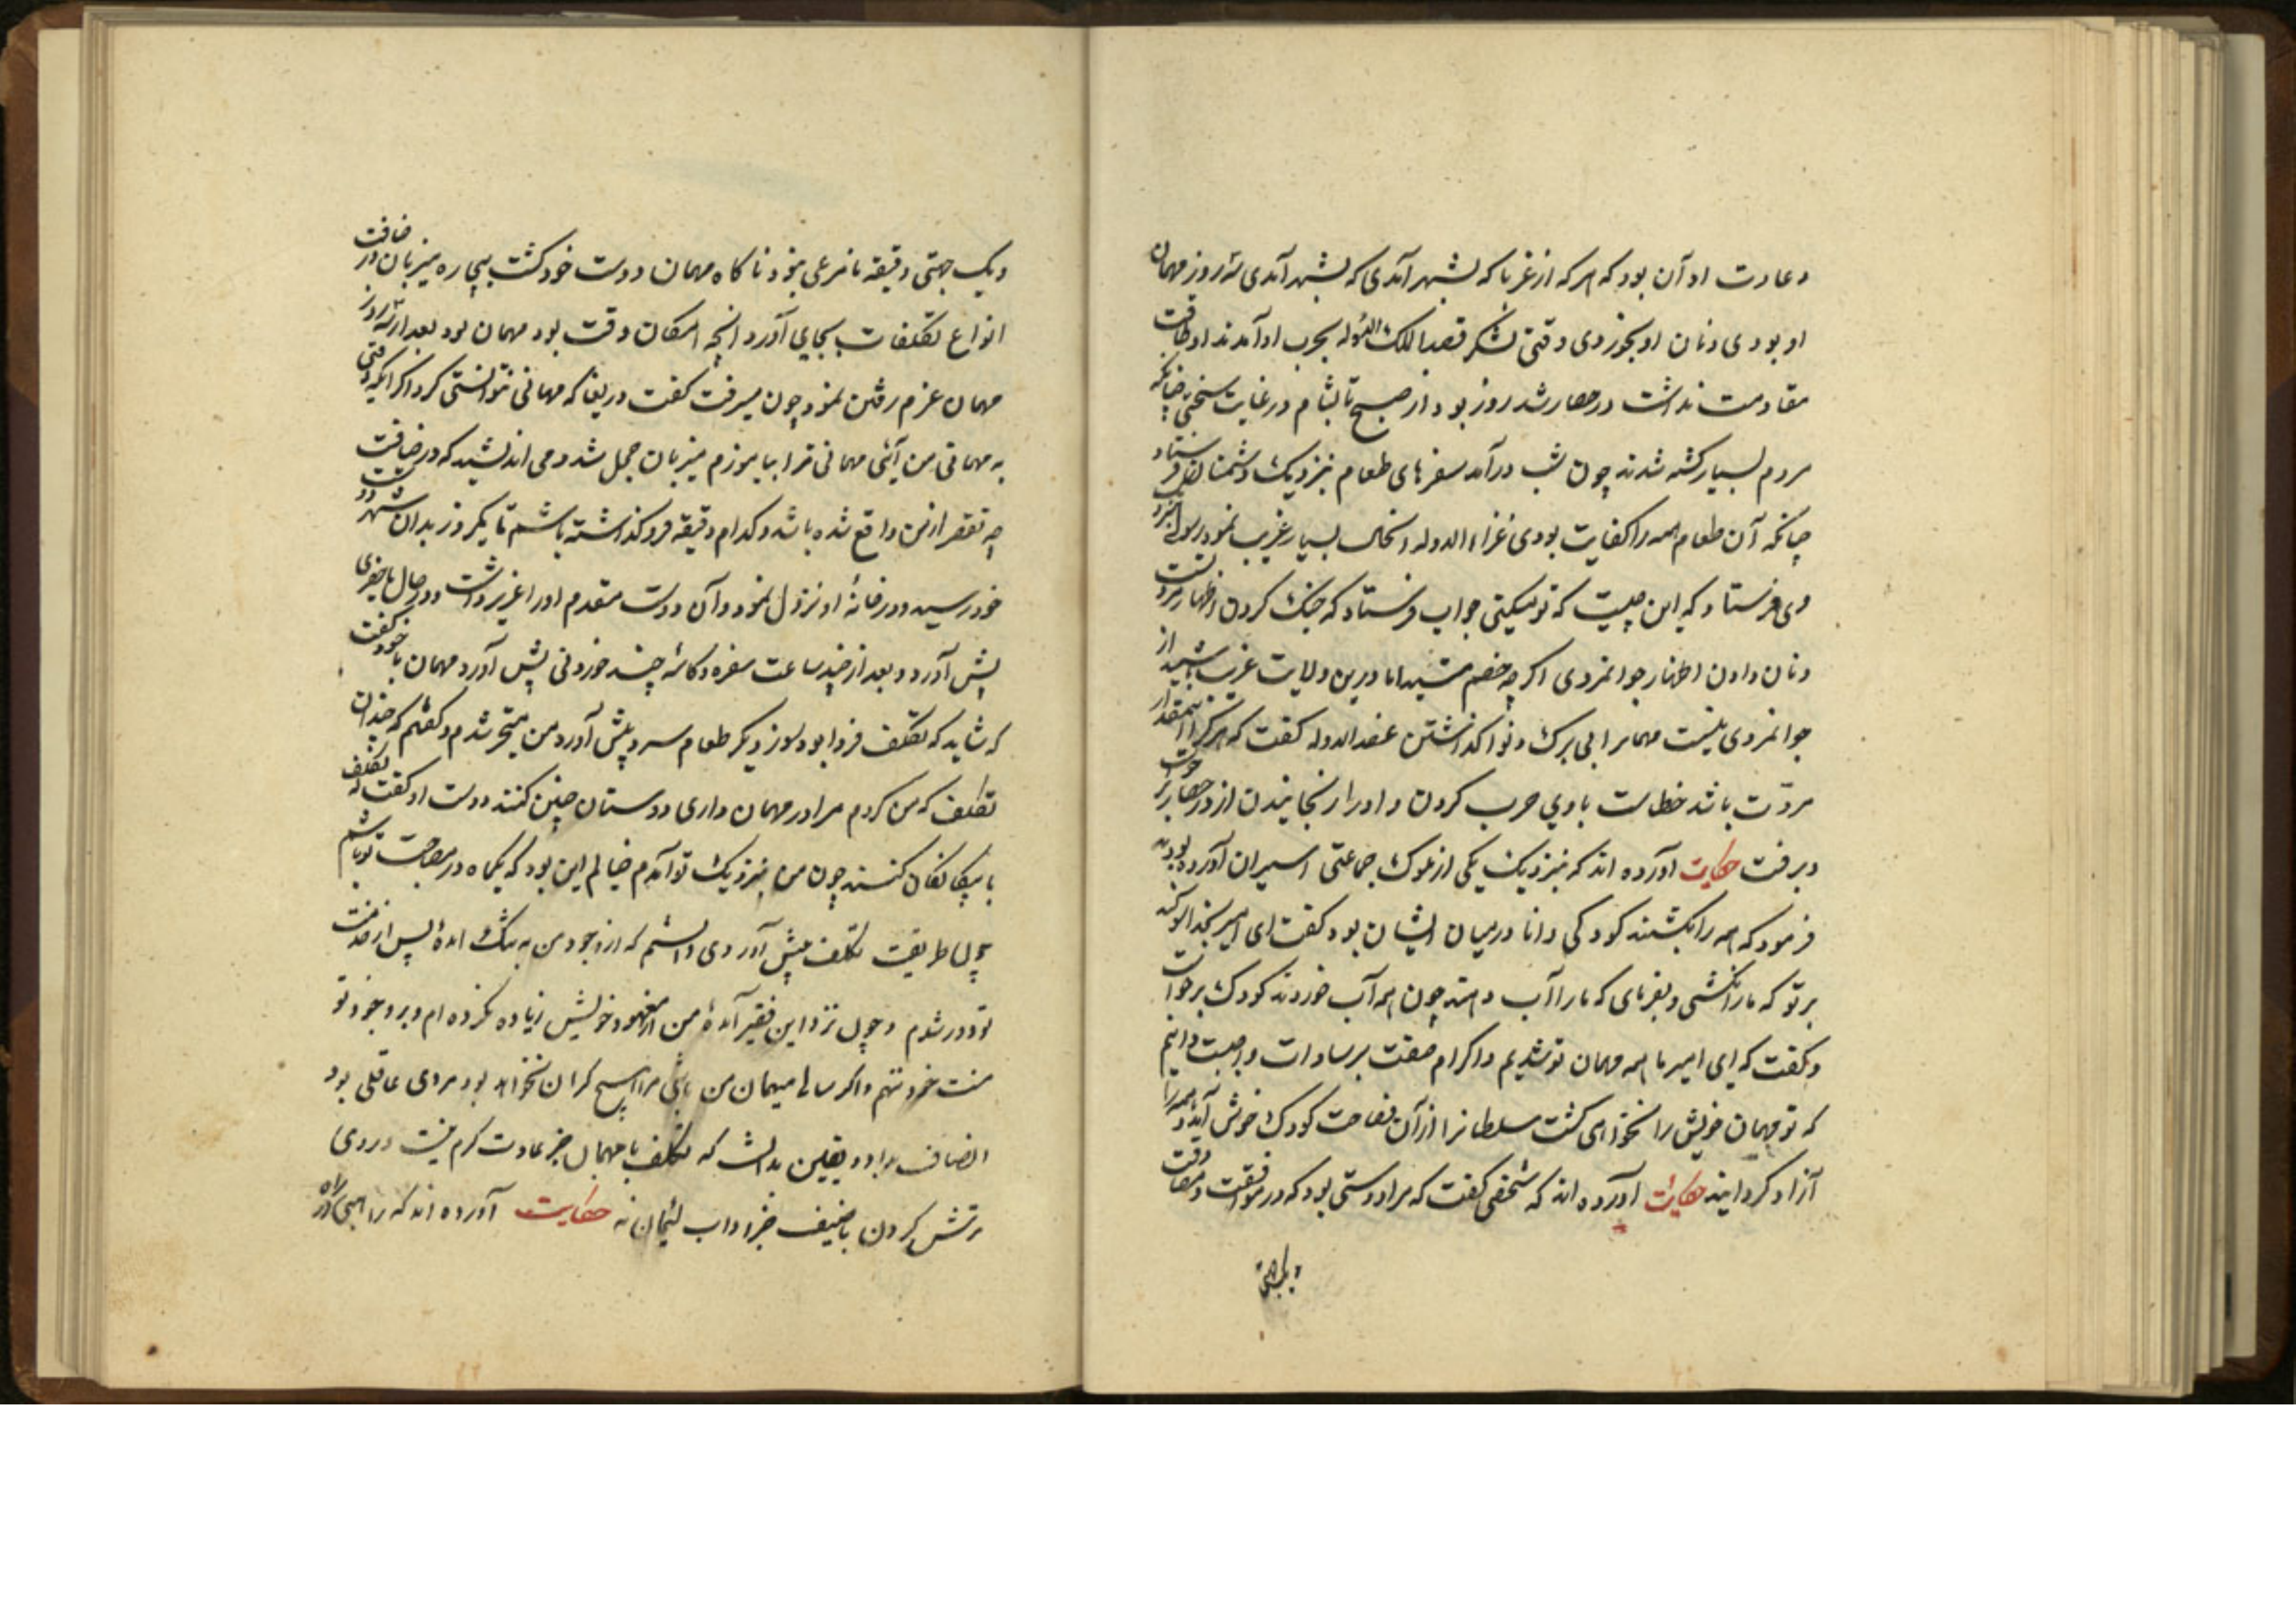 وعادت او آن بود که هر که از غربا که بشهر آمدی که بشهر آمدی سه روز مهمان
او بودی و نان او بخوردی وقتی لشکر قصد الملک الدوله بحرب او آمدند او طاقت
مقاومت نداشت در حصار شد روز بود از صبح تا بشام در غایت سختی چنانکه
مردم بسیار کشته شدند چون شب درآمد سفرهای طعام بنزدیک دشمنان فرستاد
چنانکه آن طعام همه را کفایت بودی عزاء الدوله را بسیار غریب نمود رسولی بنزد
وی فرستاد که این چیست که تو میکنی جواب فرستاد که جنک کردن اظهار مردیست
و نان دادن اظهار جوانمردی اکر چه خصم منید اما درین ولایت غریب باشید از
جوانمردی نیست مهمانرا بی برک و نوا کذاشتن عضد الدوله کفت که هر کرا اینمقدار
مروّت باشد خطاست با وی حرب کردن و او را رنجانیدن از در حصار برخواست
و برفت حکایت آورده اند که بنزدیک یکی از ملوک جماعتی اسیران آورده بودند
فرمود که همه را بکشند کودکی دانا در میان ایشان بود کفت ای امیر بخدا سوکند
بر تو که ما را نکشی و بفرمای که ما را آب دهند چون همه آب خوردند کودک برخواست
و کفت که ای امیر ما همه مهمان تو شدیم و اکرام ضیف بر سادات واجبست دانیم
که تو مهمان خویش را نخواهی کشت سلطانرا از آن فصاحت کودک خوش آمد و همه را
آزاد کردانید حکایت آورده اند که شخصی کفت که مرا دوستی بود که در موافقت و مصادقت
و یک جهتی
و یک جهتی دقیقه نامرعی نبود ناکاه مهمان دوست خود کشت بیچاره میزبان در ضیافت
انواع تکلفات بجای آورد انچه امکان وقت بود مهمان بود بعد از سه روز
مهمان عزم رفتن نمود چون میرفت کفت دریغا که مهمانی نتوانستی کرد اکر انکه وقتی
به مهمانی من آئی مهمانی ترا بیاموزم میزبان خجل شد و می اندیشید که در ضیافت
چه تقصیر از من واقع شده باشد و کدام دقیقه فرو کذاشته باشم تا یکروز بدان شهر دوست
خود رسید و در خانهٔ او نزول نمود و آن دوست مقدم او را عزیز داشت و در حال ماحضری
پیش آورد و بعد از چند ساعت سفره و کاسه چند خوردنی پیش آورد مهمان با خود کفت
که شاید که تکلف فردا بود روز دیکر طعام سرد پیش آورد من متحیر شدم و کفتم که چندان
تکلف که من کردم مرا در مهمان داری دوستان چنین کنند دوست او کفت که تکلف
با بیکانکان کنند چون من بنزدیک تو آمدم خیالم این بود که یکماه در مصاحبت تو باشم
چون طریقت تکلف پیش آوردی دانستم که از وجود من به تنک آمدهٔ پس از خدمت
تو دور شدم و چون نزد این فقیر آمدهٔ من از معهود خویش زیاده نکرده ام و بر وجود تو
منت خود ننهم و اکر سالها میهمان من باشی مرا هیچ کران نخواهد بود مردی عاقلی بود
انصاف بداد و یقین بدانست که تکلف با مهمان جز عادت کرم نیست و روی
ترش کردن با ضیف جز اداب لئیمان نه حکایت آورده اند که راهبی در راه